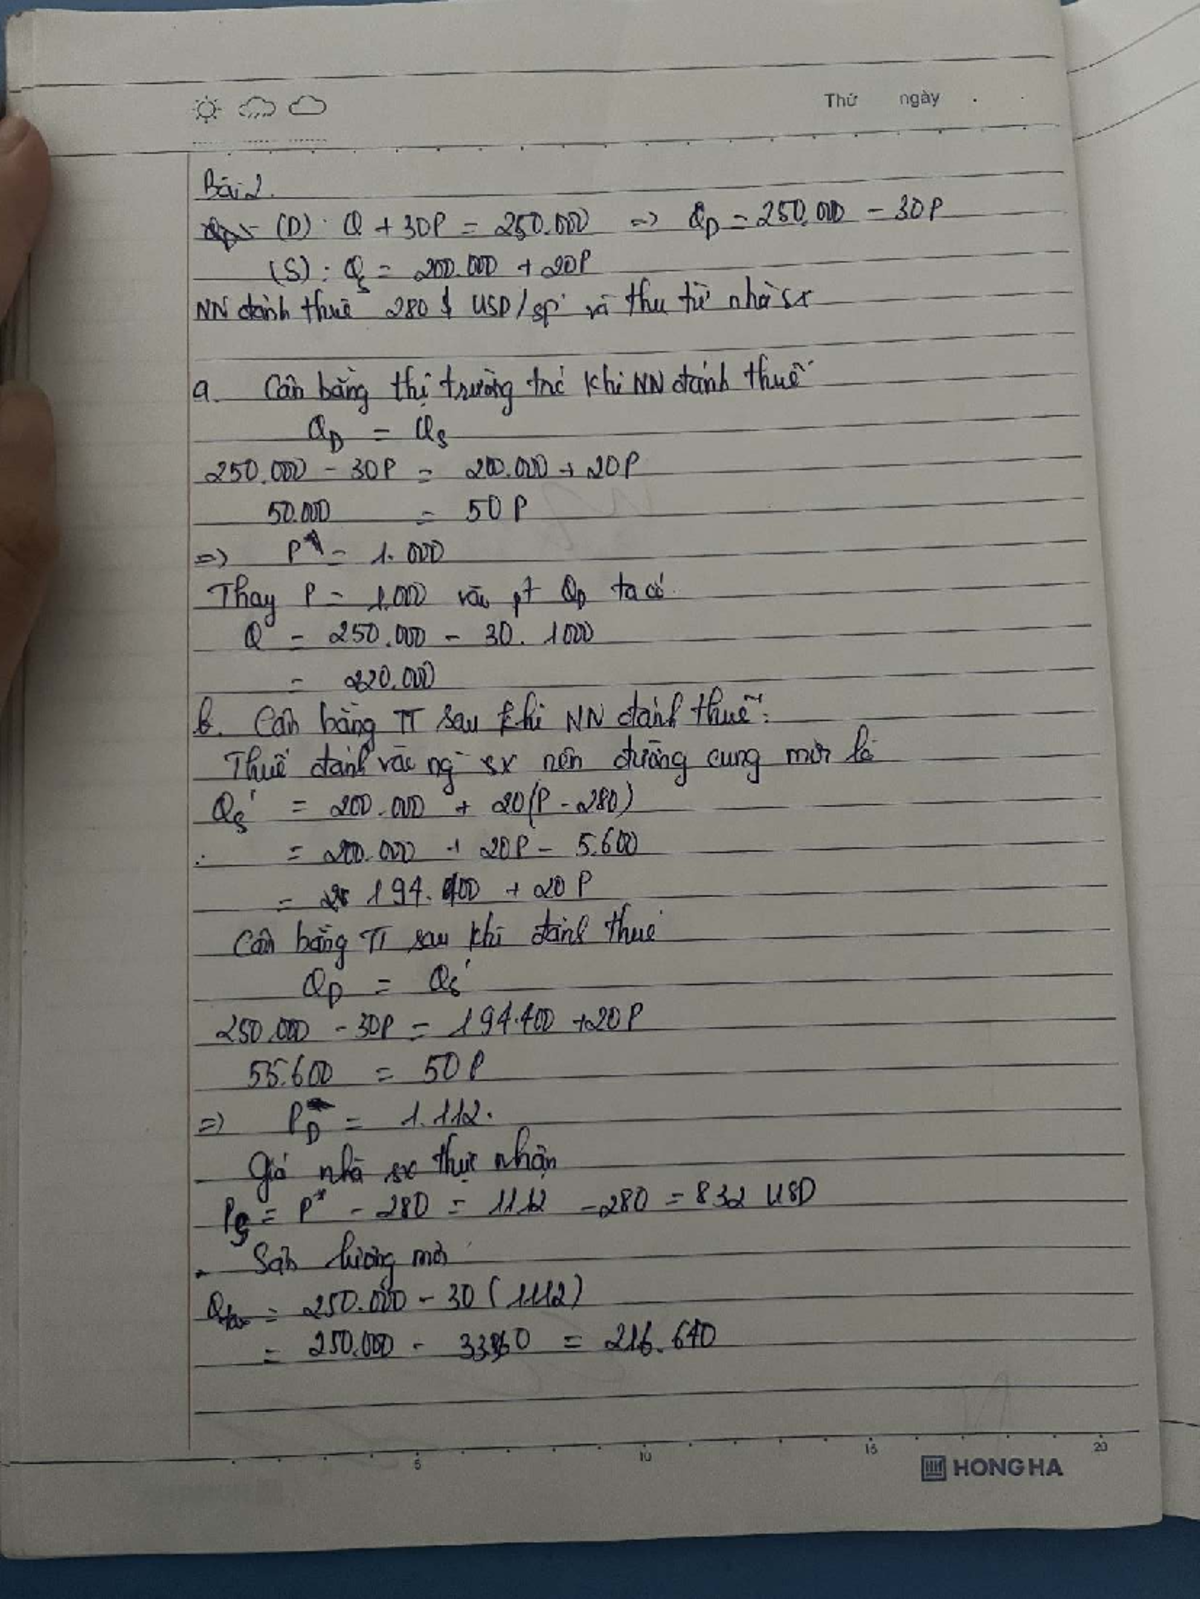 Thứ ngày
Bài 2.
(D): Q + 30P = 250.000 => QD = 250.000 - 30P
(S): QS = 200.000 + 20P
NN đánh thuế 280 $ USD/sp và thu từ nhà sx
a. Cân bằng thị trường trc khi NN đánh thuế
QD = QS
250.000 - 30P = 200.000 + 20P
50.000 = 50P
=> P* = 1.000
Thay P = 1.000 vào pt QD ta có
Q = 250.000 - 30. 1000
= 220.000
b. Cân bằng TT sau khi NN đánh thuế:
Thuế đánh vào ng sx nên đường cung mới là
QS' = 200.000 + 20(P - 280)
= 200.000 + 20P - 5.600
= 194.400 + 20P
Cân bằng TT sau khi đánh thuế
QD = QS'
250.000 - 30P = 194.400 + 20P
55.600 = 50P
=> PD = 1.112.
- Giá nhà sx thực nhận
PS = P* - 280 = 1112 - 280 = 832 USD
- Sản lượng mới
Qtax = 250.000 - 30 (1112)
= 250.000 - 33360 = 216.640
5 10 15 20
HONG HA